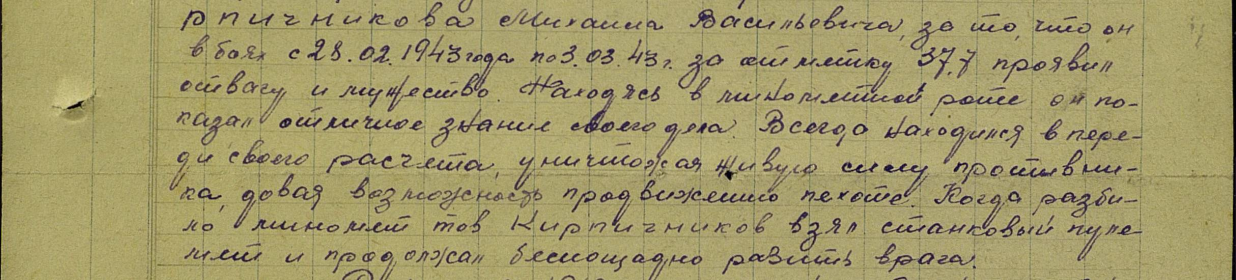 рпичникова Михаила Васильевича, за то, что он
в боях с 28.02.1943 года по 3.03.43 г. за отметку 37,7 проявил
отвагу и мужество. Находясь в минометной роте он по-
казал отличное знание своего дела. Всегда находился впере-
ди своего расчета, уничтожая живую силу противни-
ка, довая возможность продвижению пехоте. Когда разби-
ло миномет тов Кирпичников взял станковый пуле-
мет и продолжал беспощадно разить врага.